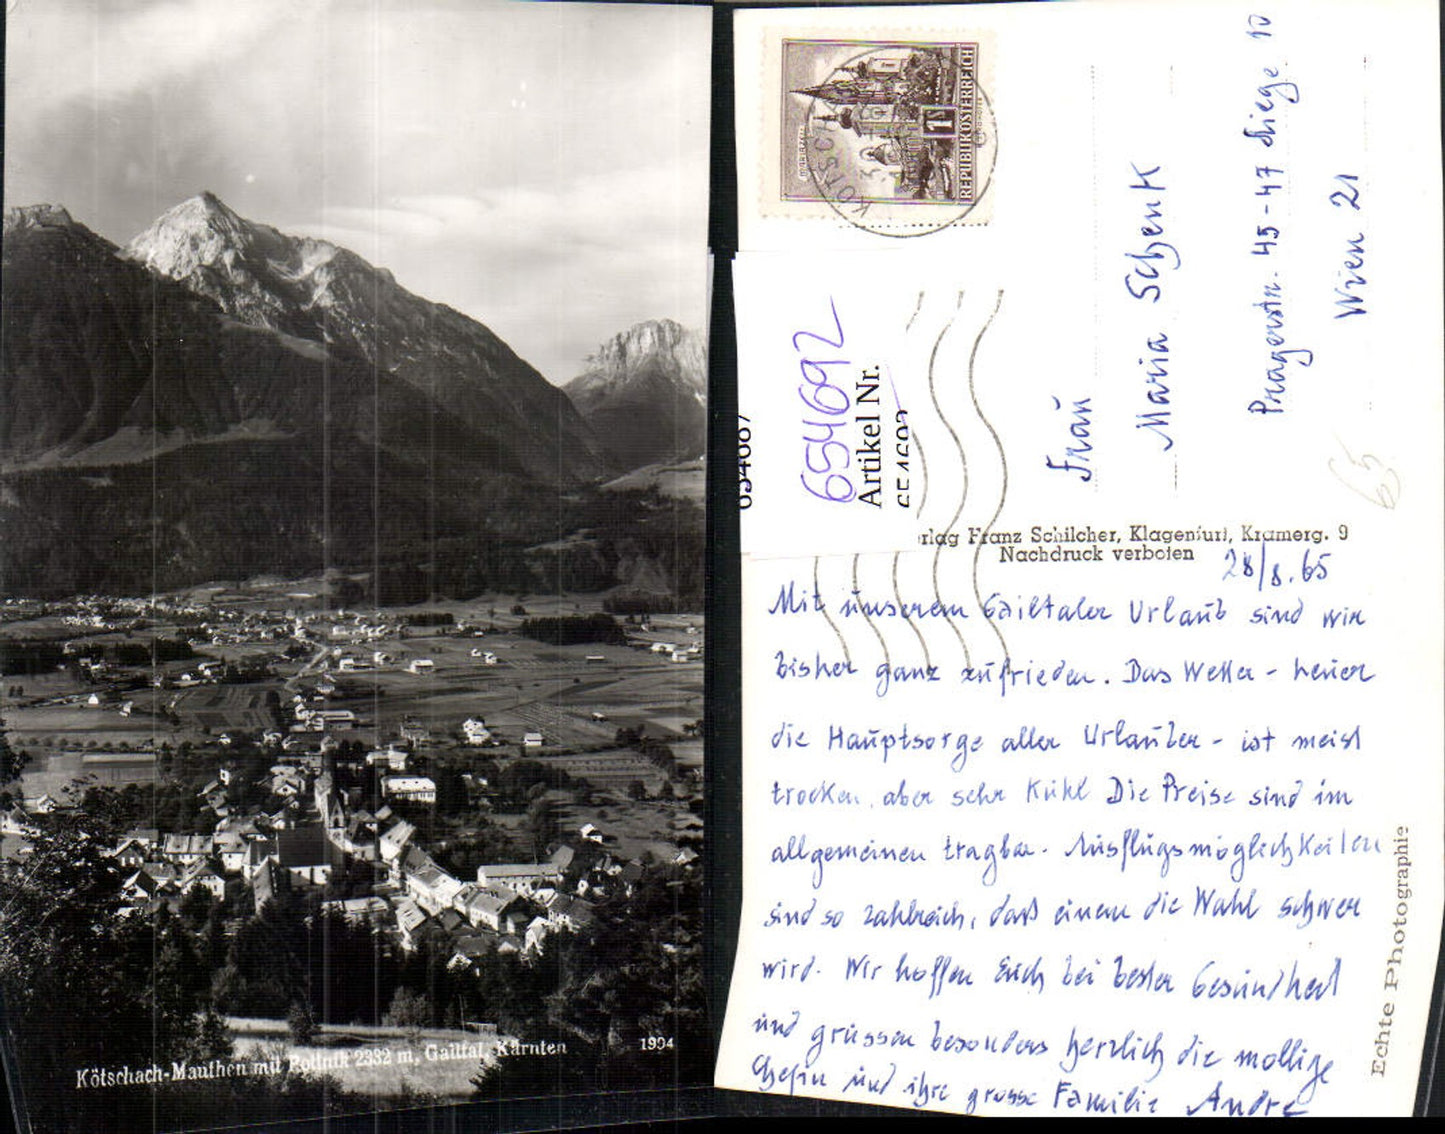 Kötschach-Mauthen mit Pollnik 2332 m, Gailtal, Kärnten
1994
MARIAZELL
1S
REPUBLIK ÖSTERREICH
KÖTSCH
654692
Artikel Nr.
654692
654687
Frau
Maria Schenk
Pragerstr. 45-47 Stiege 10
Wien 21
65
erlag Franz Schilcher, Klagenfurt, Kramerg. 9
Nachdruck verboten
28/8.65
Mit unserem Gailtaler Urlaub sind wir
bisher ganz zufrieden. Das Wetter - heuer
die Hauptsorge aller Urlauber - ist meist
trocken, aber sehr kühl Die Preise sind im
allgemeinen tragbar. Ausflugsmöglichkeiten
sind so zahlreich, daß einem die Wahl schwer
wird. Wir hoffen Euch bei bester Gesundheit
und grüssen besonders herzlich die mollige
Chefin und ihre grosse Familie André
Echte Photographie